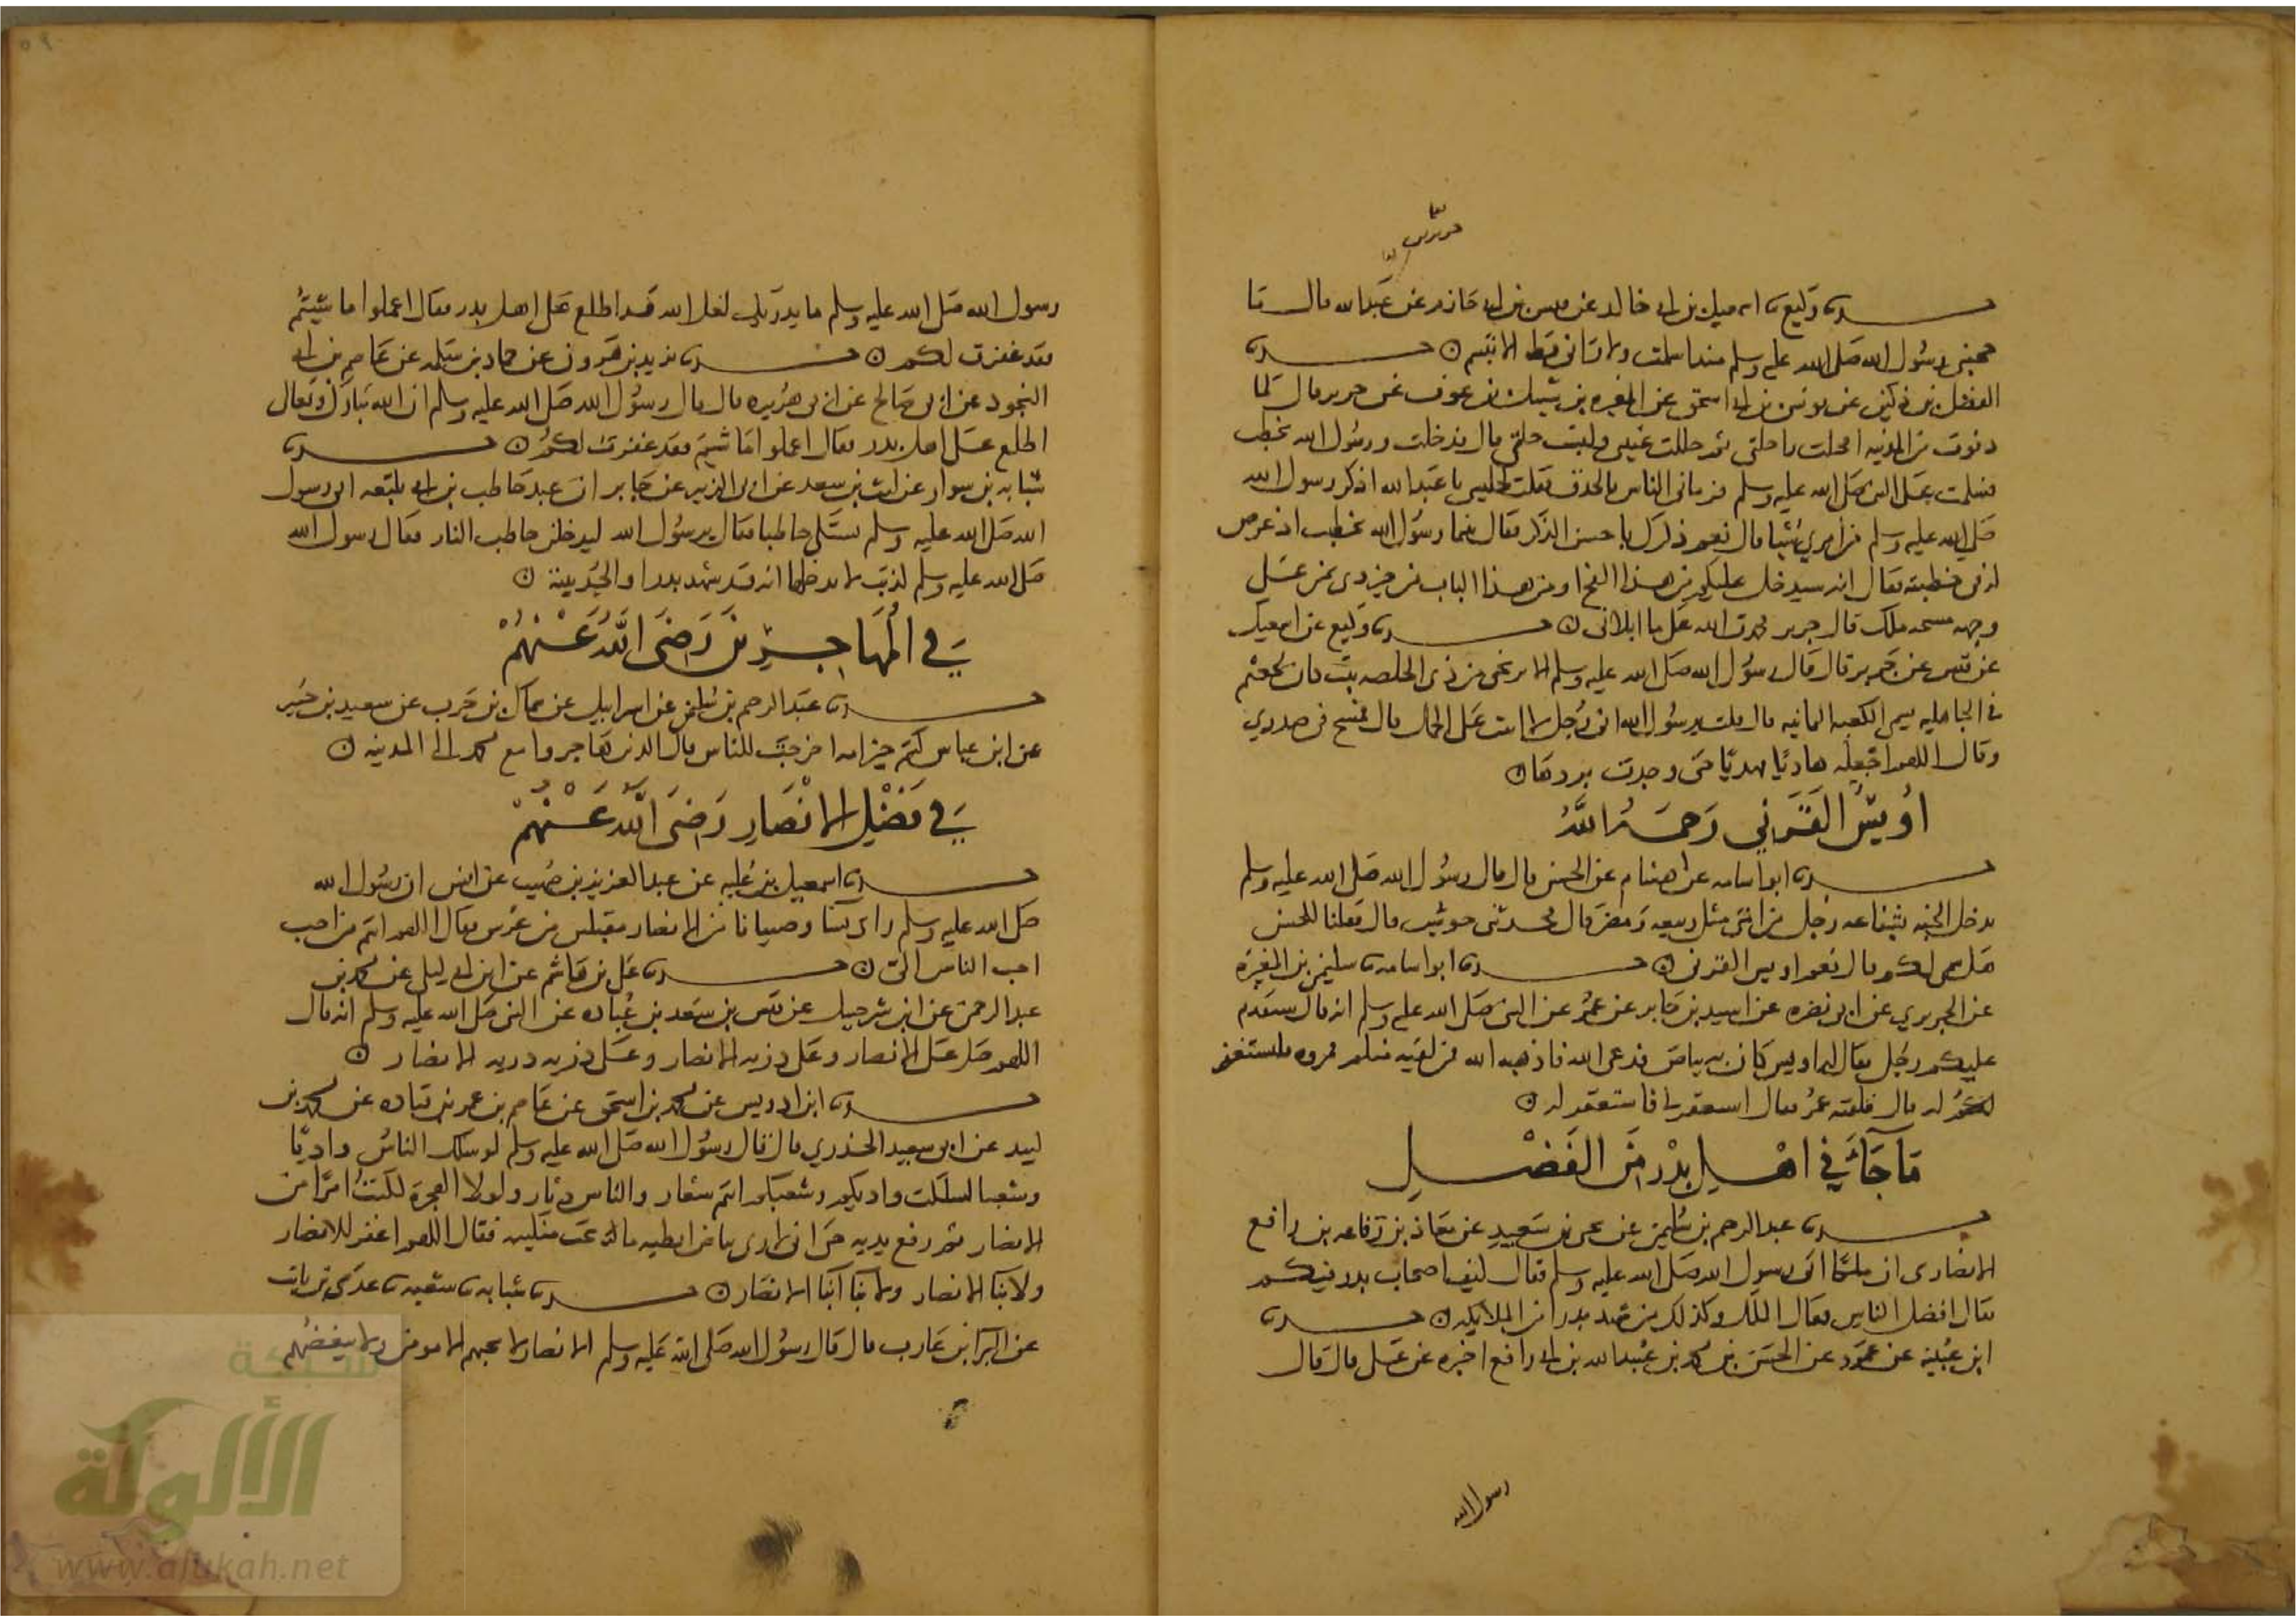 حدثنا وكيع نا اسمعيل بن ابي خالد عن قيس بن ابي حازم عن عبدالله قال ما
حجبني رسول الله صلى الله عليه وسلم منذ اسلمت ولا راني قط الا تبسم حدثنا
الفضل بن دكين عن يونس بن ابي اسحق عن المغيره بن شبيل بن عوف عن جرير قال لما
دنوت من المدينه راحلتي ثم حللت عيبتي ولبست حلتي قال فدخلت ورسول الله يخطب
فسلمت على النبي صلى الله عليه وسلم فرماني الناس بالحدق فقلت لجليسي يا عبدالله اذكر رسول الله
صلى الله عليه وسلم من امري شيا قال نعم ذكرك باحسن الذكر فقال بينما رسول الله يخطب اذ عرض
له في خطبته فقال انه سيدخل عليكم من هذا الفج او من هذا الباب من خير ذي يمن على
وجهه مسحه ملك قال جرير فحمدت الله على ما ابلاني حدثنا وكيع عن اسمعيل
عن قيس عن جرير قال قال رسول الله صلى الله عليه وسلم الا تريحني من ذي الخلصه بيت كان لخثعم
في الجاهليه يسمى الكعبه اليمانيه قال قلت يرسول الله اني رجل لا اثبت على الخيل قال فمسح في صدري
وقال اللهم اجعله هاديا مهديا حتى وجدت بردها
اويس القرني رحمه الله
حدثنا ابو اسامه عن هشام عن الحسن قال قال رسول الله صلى الله عليه وسلم
يدخل الجنه بشفاعه رجل من امتي مثل ربيعه ومضر قال فحدثني حوشب قال فقلنا للحسن
هل سمى لكم قال نعم اويس القرني حدثنا ابو اسامه نا سليمن بن المغيرة
عن الجريري عن ابي نضره عن اسير بن جابر عن عمر عن النبي صلى الله عليه وسلم انه قال سيقدم
عليكم رجل يقال له اويس كان به بياض فدعى الله فاذهبه الله فمن لقيه منكم فمروه فليستغفر
لكم قال فلقيه عمر فقال استغفر لي فاستغفر له
ما جاء في اهل بدر من الفضل
حدثنا عبد الرحيم بن سليمن عن يحيى بن سعيد عن معاذ بن رفاعه بن رافع
الانصاري ان ملكا اتى رسول الله صلى الله عليه وسلم فقال كيف اصحاب بدر فيكم
فقال افضل الناس فقال الملك وكذلك من شهد بدرا من الملايكه حدثنا
ابن عيينة عن عمرو عن الحسن بن محمد بن عبيدالله بن ابي رافع اخبره عن علي قال قال
رسول الله
رسول الله صلى الله عليه وسلم ما يدريك لعل الله قد اطلع على اهل بدر فقال اعملوا ما شيتم
فقد غفرت لكم حدثنا يزيد بن هرون عن حماد بن سلمه عن عاصم بن ابي
النجود عن ابي صالح عن ابي هريره قال قال رسول الله صلى الله عليه وسلم ان الله تبارك وتعالى
اطلع على اهل بدر فقال اعملوا ما شيتم فقد غفرت لكم حدثنا
شبابه بن سوار عن ليث بن سعد عن ابي الزبير عن جابر ان عبد حاطب بن ابي بلتعه اتى رسول
الله صلى الله عليه وسلم يشتكي حاطبا فقال يرسول الله ليدخلن حاطب النار فقال رسول الله
صلى الله عليه وسلم كذبت لا يدخلها انه قد شهد بدرا والحديبية
في المهاجرين رضي الله عنهم
حدثنا عبد الرحيم بن سليمن عن اسرائيل عن سماك بن حرب عن سعيد بن جبير
عن ابن عباس كنتم خير امه اخرجت للناس قال الذين هاجروا مع محمد الى المدينه
في فضل الانصار رضي الله عنهم
حدثنا اسمعيل بن عليه عن عبد العزيز بن صهيب عن انس ان رسول الله
صلى الله عليه وسلم راى نسا وصبيانا من الانصار مقبلين من عرس فقال اللهم انتم من احب
احب الناس الي حدثنا علي بن هاشم عن ابن ابي ليلى عن محمد بن
عبد الرحمن عن ابن شرحبيل عن قيس بن سعد بن عباده عن النبي صلى الله عليه وسلم انه قال
اللهم صل على الانصار وعلى ذريه الانصار وعلى ذريه ذريه الانصار
حدثنا ابن ادريس عن محمد بن اسحق عن عاصم بن عمر بن قتاده عن محمد بن
لبيد عن ابي سعيد الخدري قال قال رسول الله صلى الله عليه وسلم لو سلك الناس واديا
وشعبا لسلكت واديكم وشعبكم انتم شعار والناس دثار ولولا الهجرة لكنت امرا من
الانصار ثم رفع يديه حتى اني لارى بياض ابطيه ما تحت منكبيه فقال اللهم اغفر للانصار
ولابنا الانصار ولابنا ابنا الانصار حدثنا شبابه نا شعبه نا عدي بن ثابت
عن البرا بن عازب قال قال رسول الله صلى الله عليه وسلم الانصار لا يحبهم الا مومن ولا يبغضهم
شبكة
الألوكة
www.alukah.net